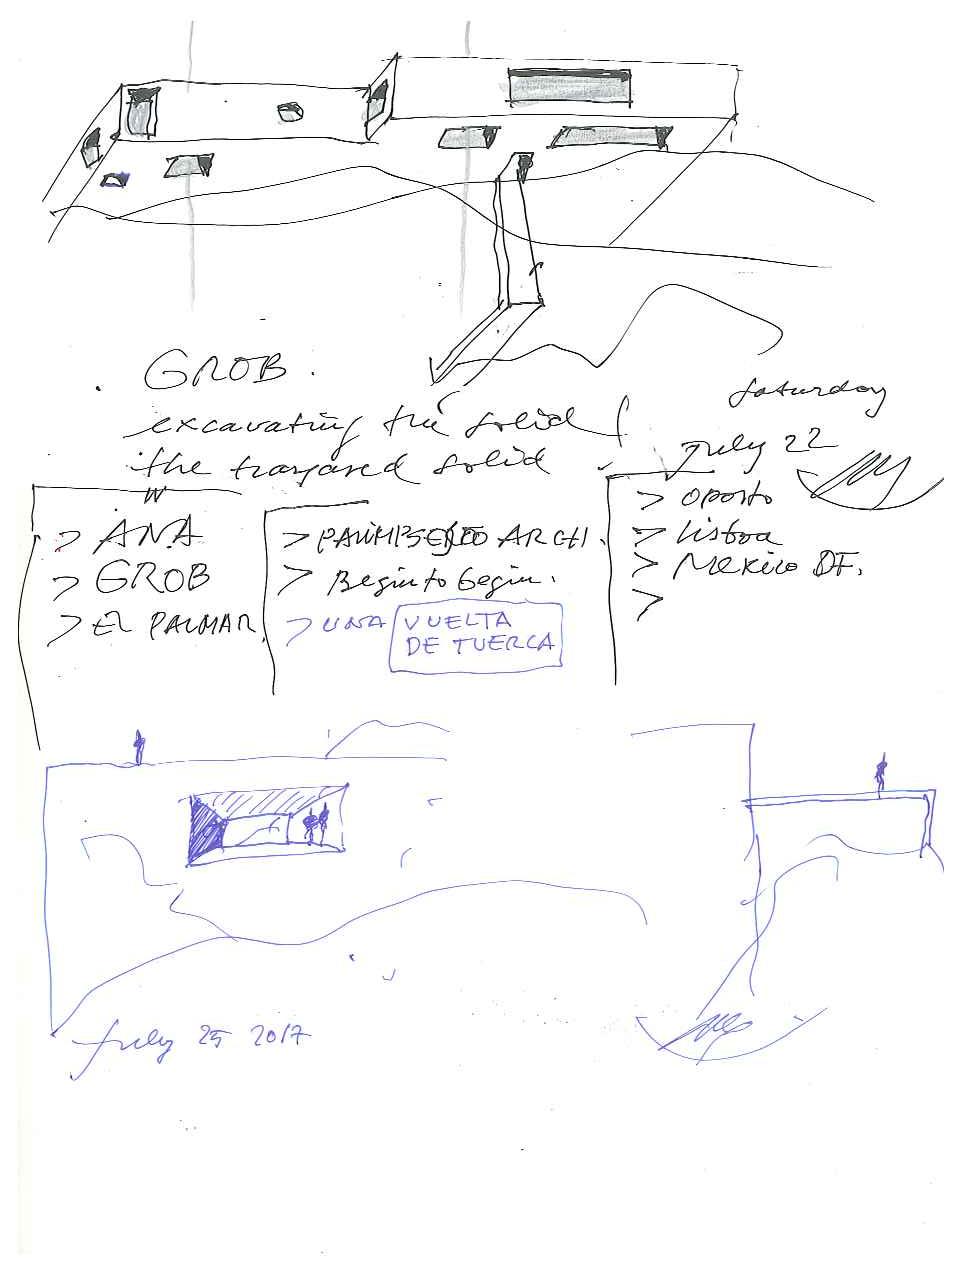 GROB.
Saturday
excavating the solid
July 22
the solid
> ANA
> GROB
> EL PALMAR
> ARCHI.
> Begin to begin.
> UNA VUELTA
DE TUERCA
> Oporto
> Lisboa
> Mexico DF.
>
July 25 2017